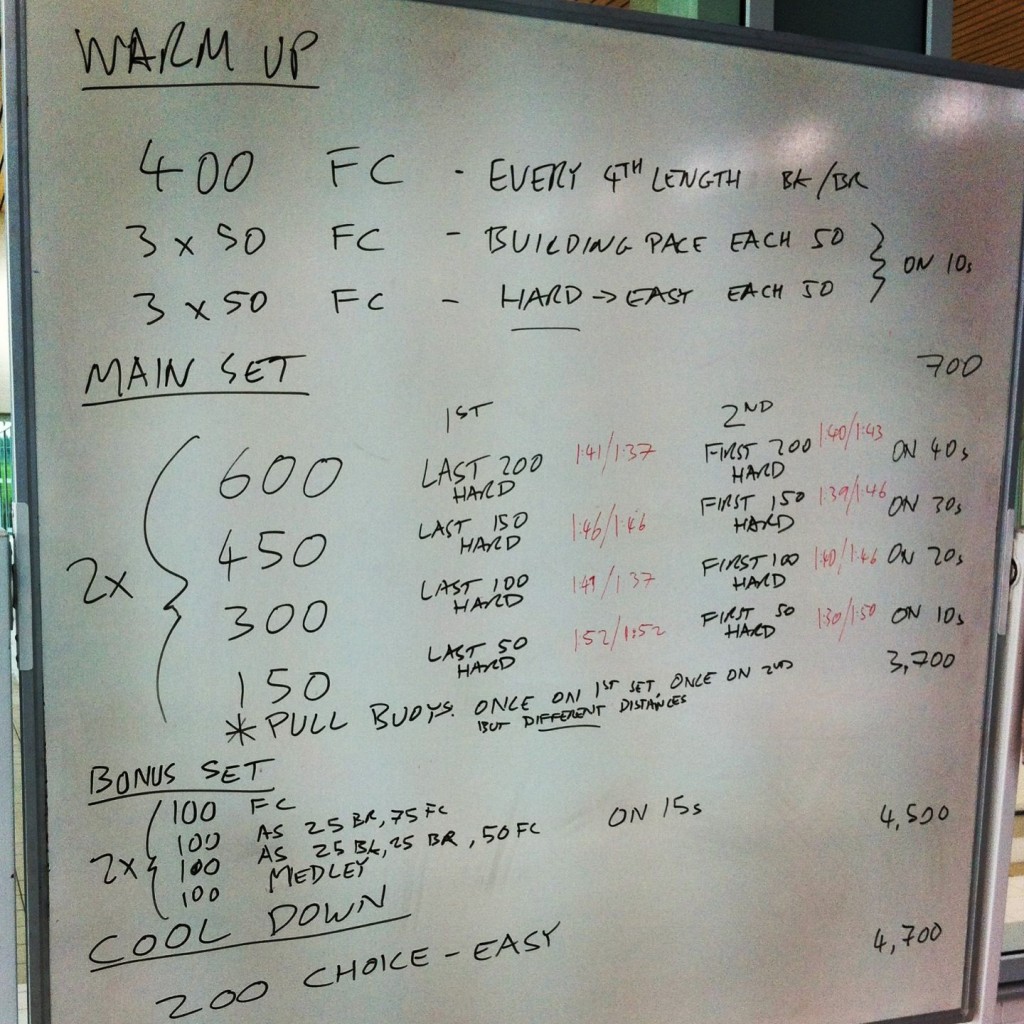 WARM UP
400 FC - EVERY 4TH LENGTH BK/BR
3 x 50 FC - BUILDING PACE EACH 50
3 x 50 FC - HARD → EASY EACH 50
} ON 10s
700
MAIN SET
1ST 2ND
2x
600 LAST 200 HARD 1:41/1:37 FIRST 200 HARD 1:40/1:43 ON 40s
450 LAST 150 HARD 1:46/1:46 FIRST 150 HARD 1:39/1:46 ON 30s
300 LAST 100 HARD 1:41/1:37 FIRST 100 HARD 1:40/1:46 ON 20s
150 LAST 50 HARD 1:52/1:52 FIRST 50 HARD 1:30/1:50 ON 10s
3,700
* PULL BUOYS. ONCE ON 1ST SET, ONCE ON 2ND
BUT DIFFERENT DISTANCES
BONUS SET
2x
100 FC
100 AS 25 BR, 75 FC
100 AS 25 BK, 25 BR, 50 FC
100 MEDLEY
ON 15s
4,500
COOL DOWN
200 CHOICE - EASY
4,700